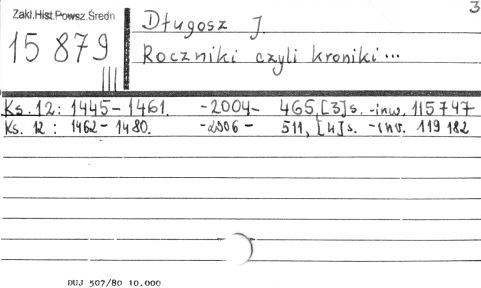 3
Zakł.Hist.Powsz.Średn.
Długosz J.
15 879
Roczniki czyli kroniki...
III
Ks. 12: 1445-1461. -2004- 465,[3]s. -inw. 115747
Ks. 12: 1462-1480. -2006- 511, [4]s. -inw. 119 182
DUJ 507/80 10.000